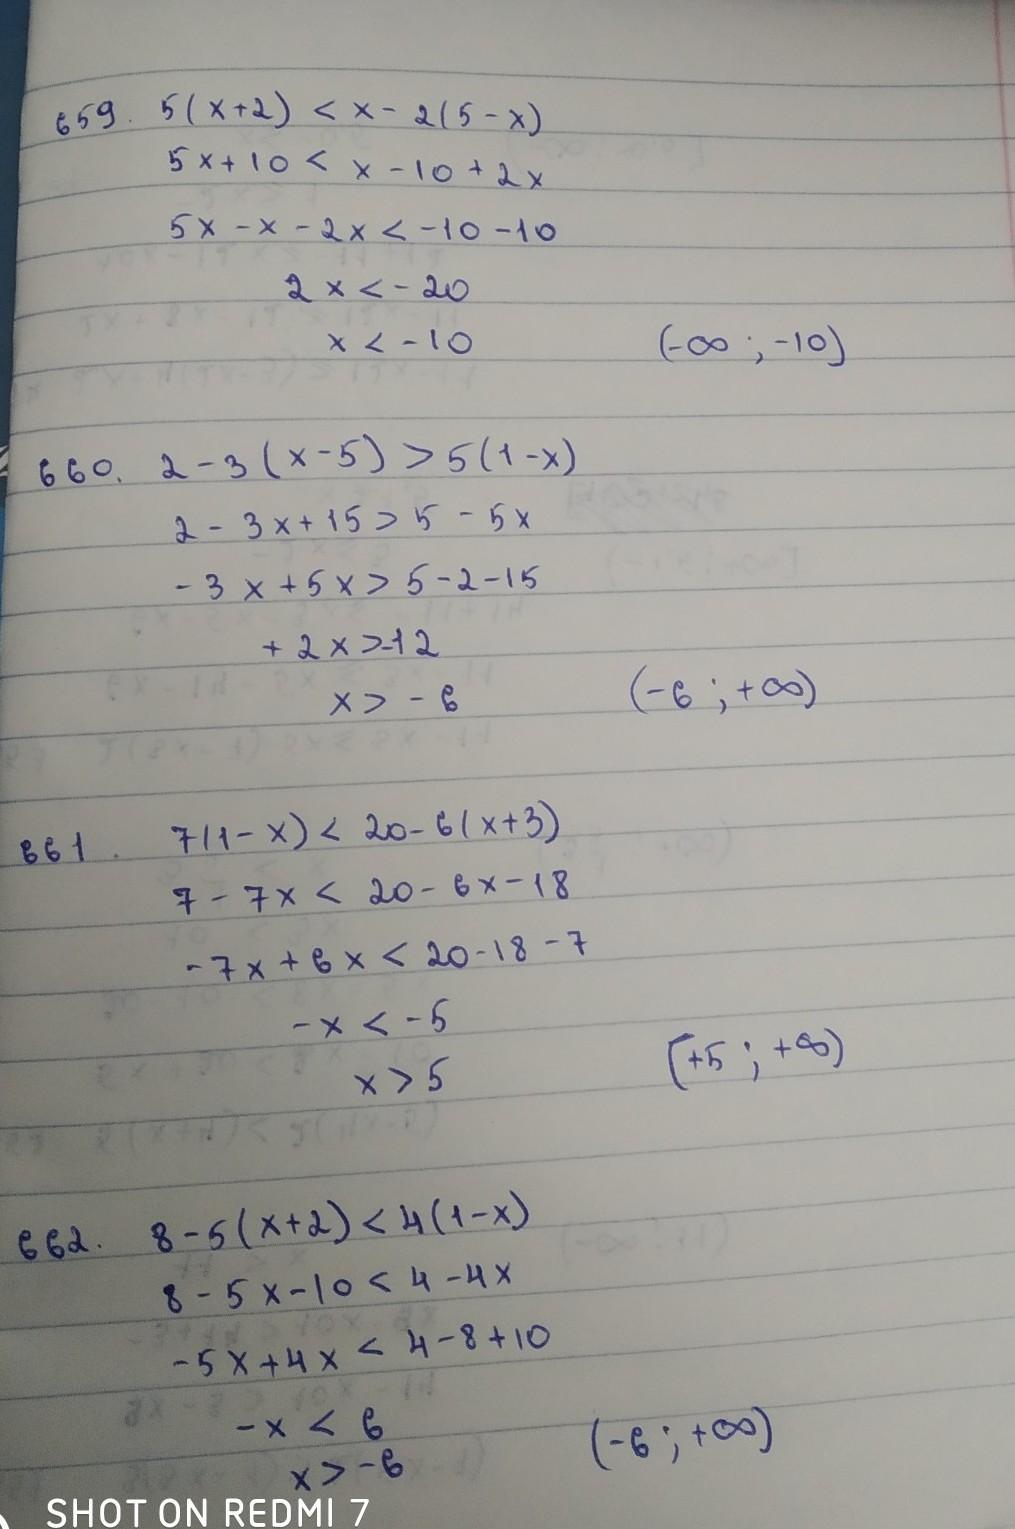 659. 5(x+2) < x - 2(5 - x)
5x+10 < x - 10 + 2x
5x - x - 2x < -10 -10
2x < -20
x < -10 (-∞ ; -10)
660. 2 - 3(x-5) > 5(1-x)
2 - 3x + 15 > 5 - 5x
-3x + 5x > 5-2-15
+ 2x > -12
x > -6 (-6 ; +∞)
661. 7(1-x) < 20 - 6(x+3)
7 - 7x < 20 - 6x - 18
-7x + 6x < 20-18-7
-x < -5
x > 5 (+5 ; +∞)
662. 8 - 5(x+2) < 4(1-x)
8 - 5x - 10 < 4 - 4x
-5x + 4x < 4 - 8 + 10
-x < 6
x > -6 (-6 ; +∞)
SHOT ON REDMI 7